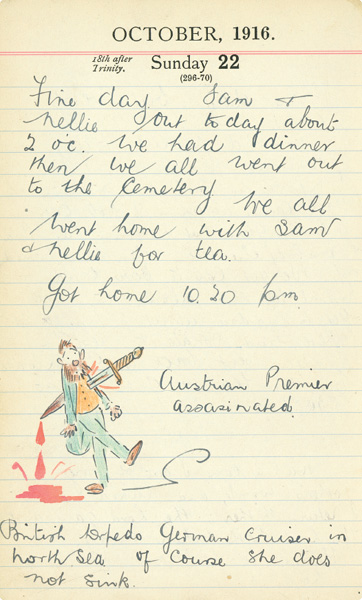 OCTOBER, 1916.
18th after Trinity. Sunday 22
(296-70)
Fine day Sam &
Nellie out today about
2 oc. We had dinner
then we all went out
to the Cemetery We all
went home with Sam
& Nellie for tea.
Got home 10.20 pm
Austrian Premier
assasinated.
British torpedo German Cruiser in
North Sea of Course she does
not sink.